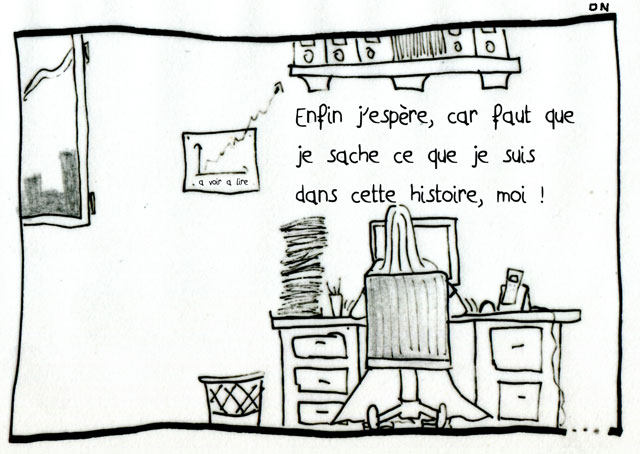 ON
Enfin j'espère, car faut que
je sache ce que je suis
dans cette histoire, moi !
a voir a lire